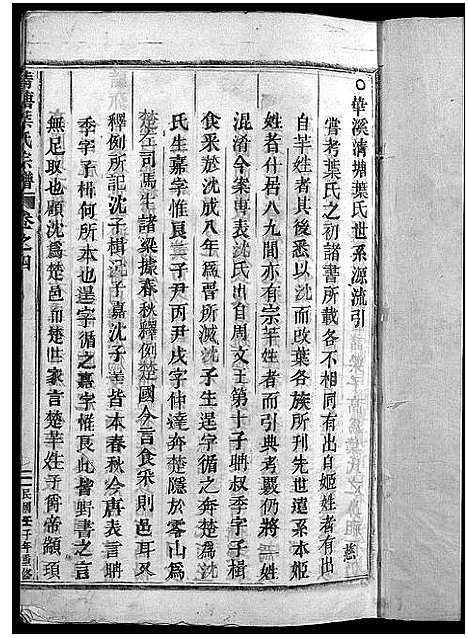 ○華溪清塘葉氏世系源流引
嘗考葉氏之初諸書所載各不相同有出自姬姓者有出
自芊姓者其後悉以沈而改葉各族所刊先世遠系本姬
姓者什居八九間亦有宗芊姓者而引典考覈仍將二姓
混淆今案専表沈氏出自周文王第十子聃叔季字子楫
食采於沈成八年為晉所滅沈子生逞字循之奔楚為沈
氏生嘉字惟良二子尹丙尹戌字仲達奔楚隱於零山為
楚左司馬生諸梁據春秋釋例楚國今言食采則邑耳又
釋例所記沈子楫沈子嘉沈子逞皆本春秋今唐表言聃
季字子楫何所本也逞字循之嘉字惟良此皆野書之言
無足取也顧沈為楚邑而楚世家言楚芊姓子爵帝顓頊
清塘葉氏宗譜
卷之四
一
民國壬子年重修